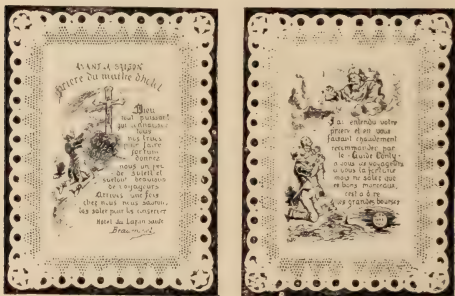 AVANT LA SAISON
Prière du maître d'hôtel
Dieu
tout puissant
qui connaissez
tous
nos trucs
pour faire
fortune
donnez
nous un peu
de soleil et
surtout beaucoup
de voyageurs
Arrivés une fois
chez nous nous saurons
les saler pour les conserver
Hotel du Lapin sauté
Beaumont
J'ai entendu votre
prière et en vous
faisant chaudement
recommander par
le Guide Conty
à vous les voyageurs
à vous la fortune
mais ne salez que
les bons morceaux,
c'est à dire
les grandes bourses